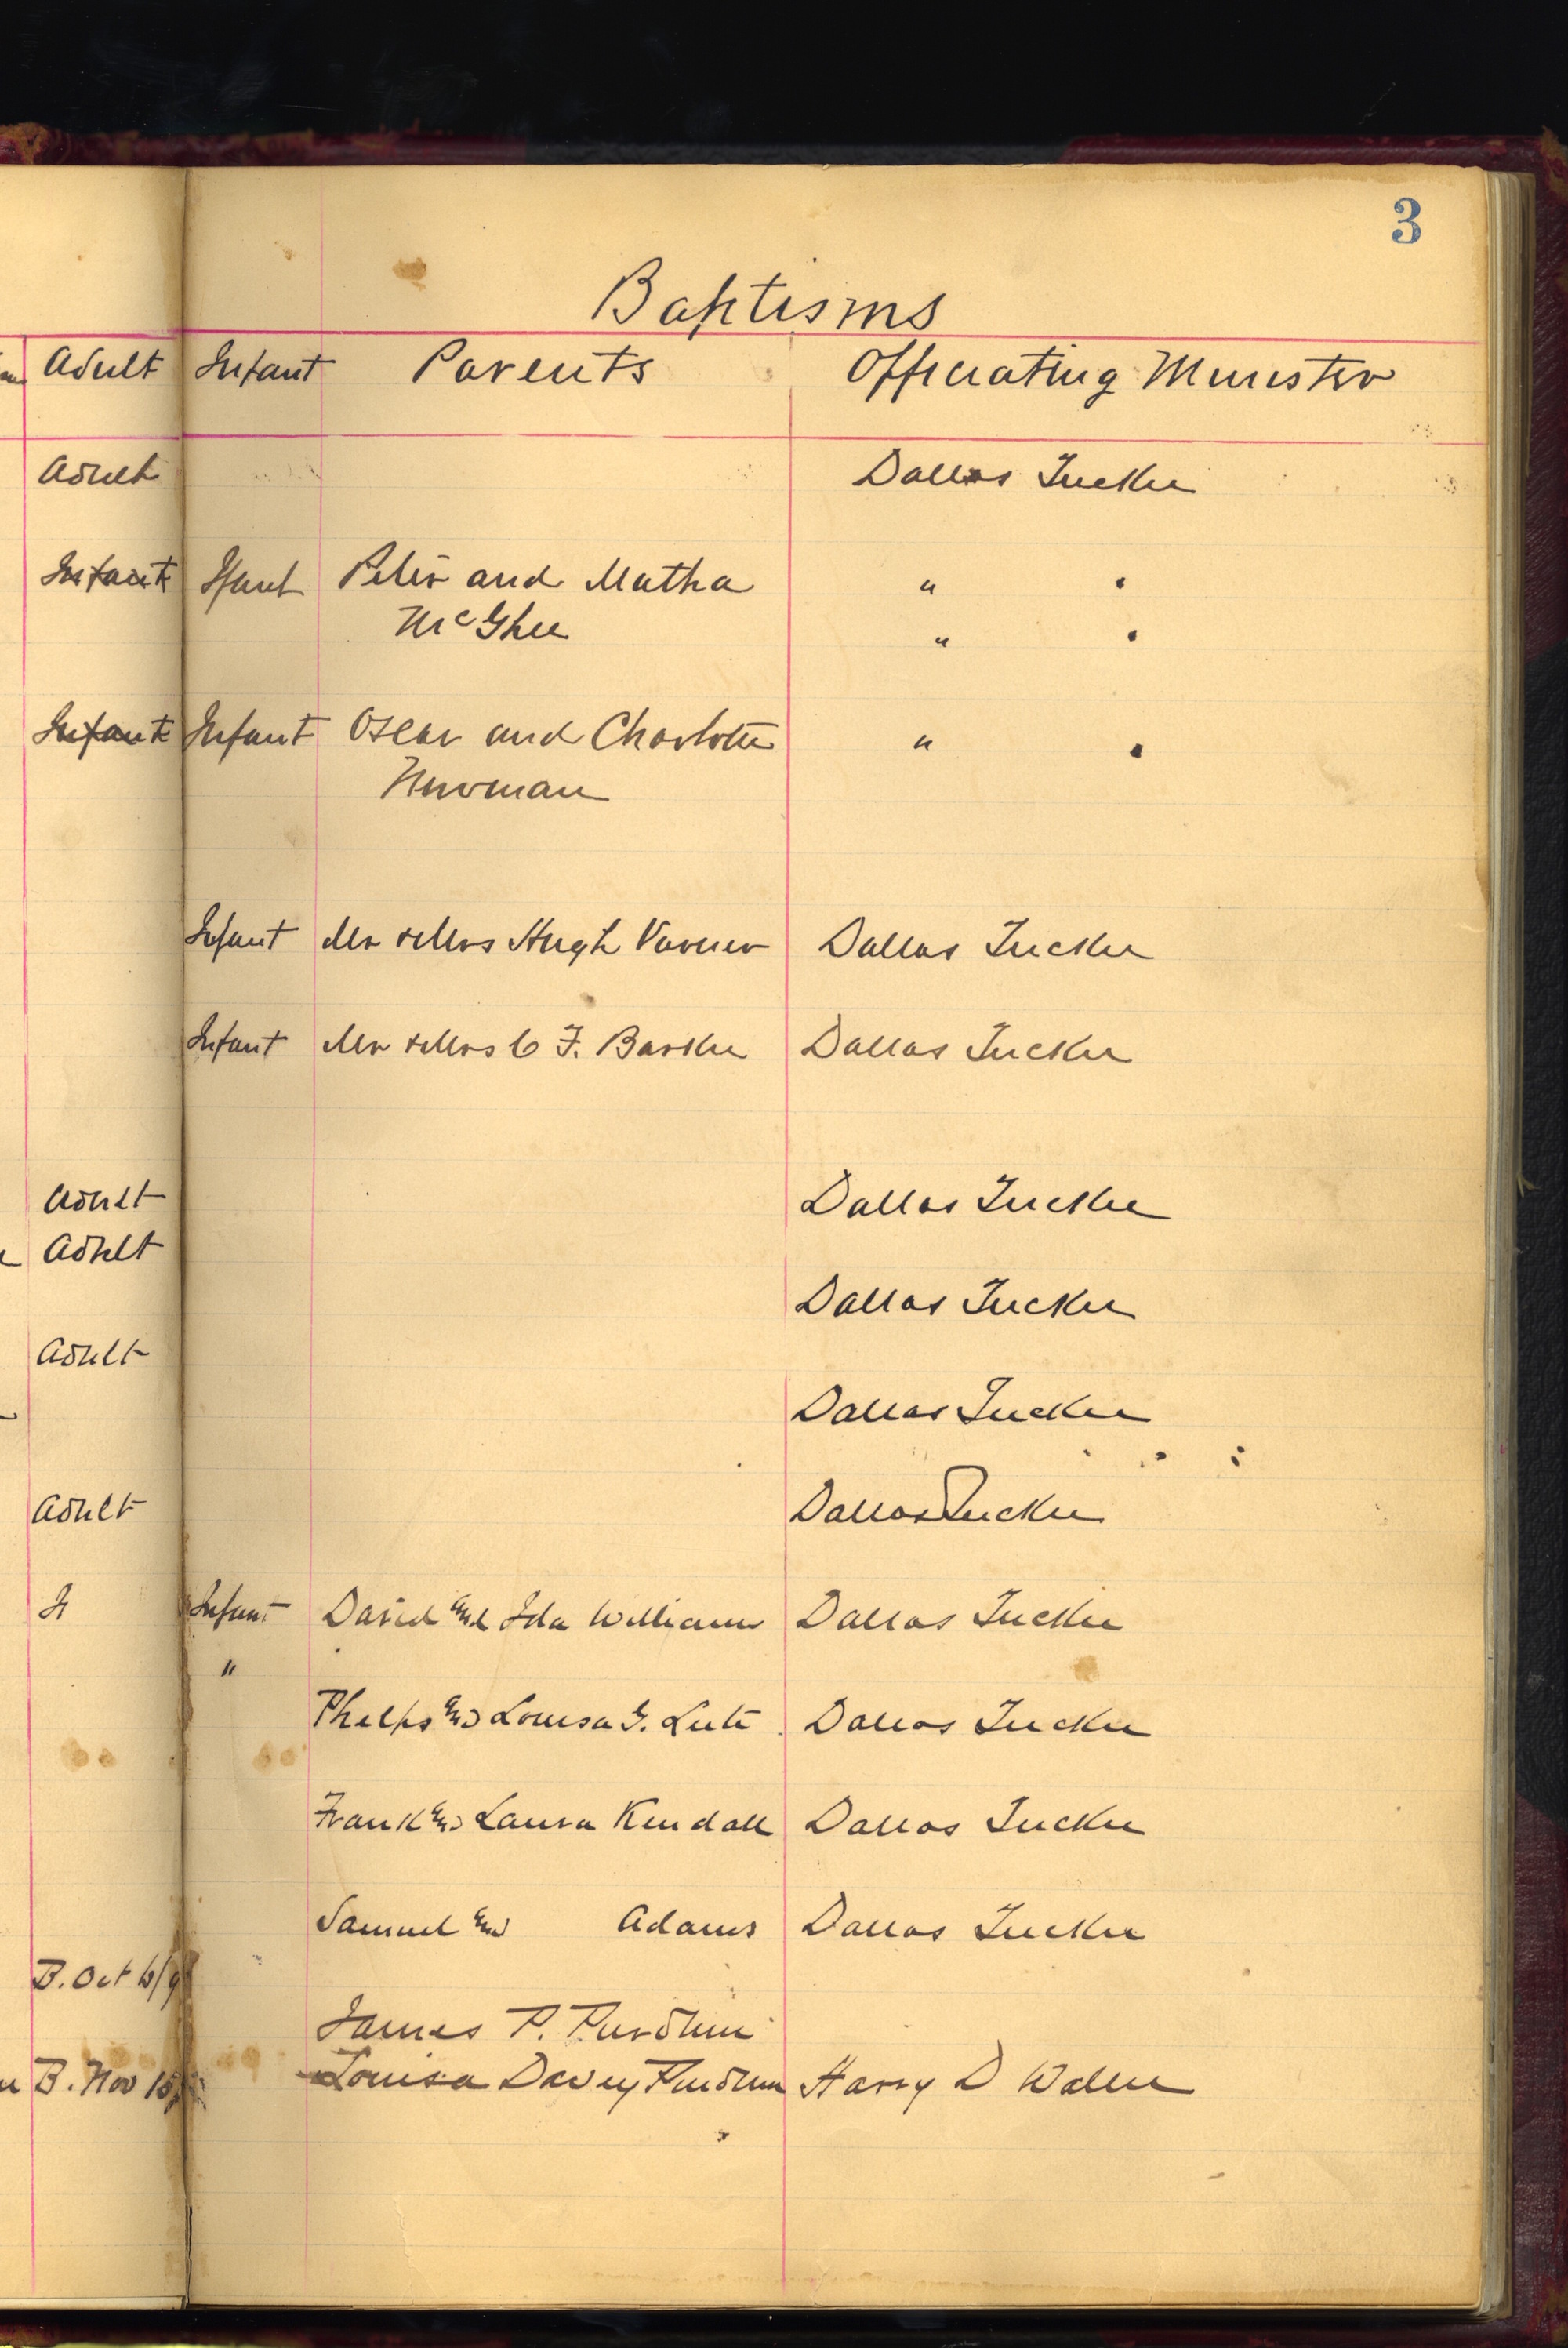 3
Baptisms
Adult Infant Parents Officiating Minister
Adult Dallas Tucker
Infant Ifant Peter and Matha " "
McGhee " "
Infant Infant Oscar and Charlotte " "
Newman
Infant Mr & Mrs Hugh Varner Dallas Tucker
Infant Mr & Mrs C F. Barker Dallas Tucker
Adult Dallas Tucker
Adult
Dallas Tucker
Adult
Dallas Tucker
Adult Dallas Tucker
Infant David and Ida Williams Dallas Tucker
"
Phelps and Louisa G. Dallas Tucker
Frank and Laura Kendall Dallas Tucker
Samuel and Adams Dallas Tucker
B. Oct
James P.
B. Nov Louisa Davey Harry D